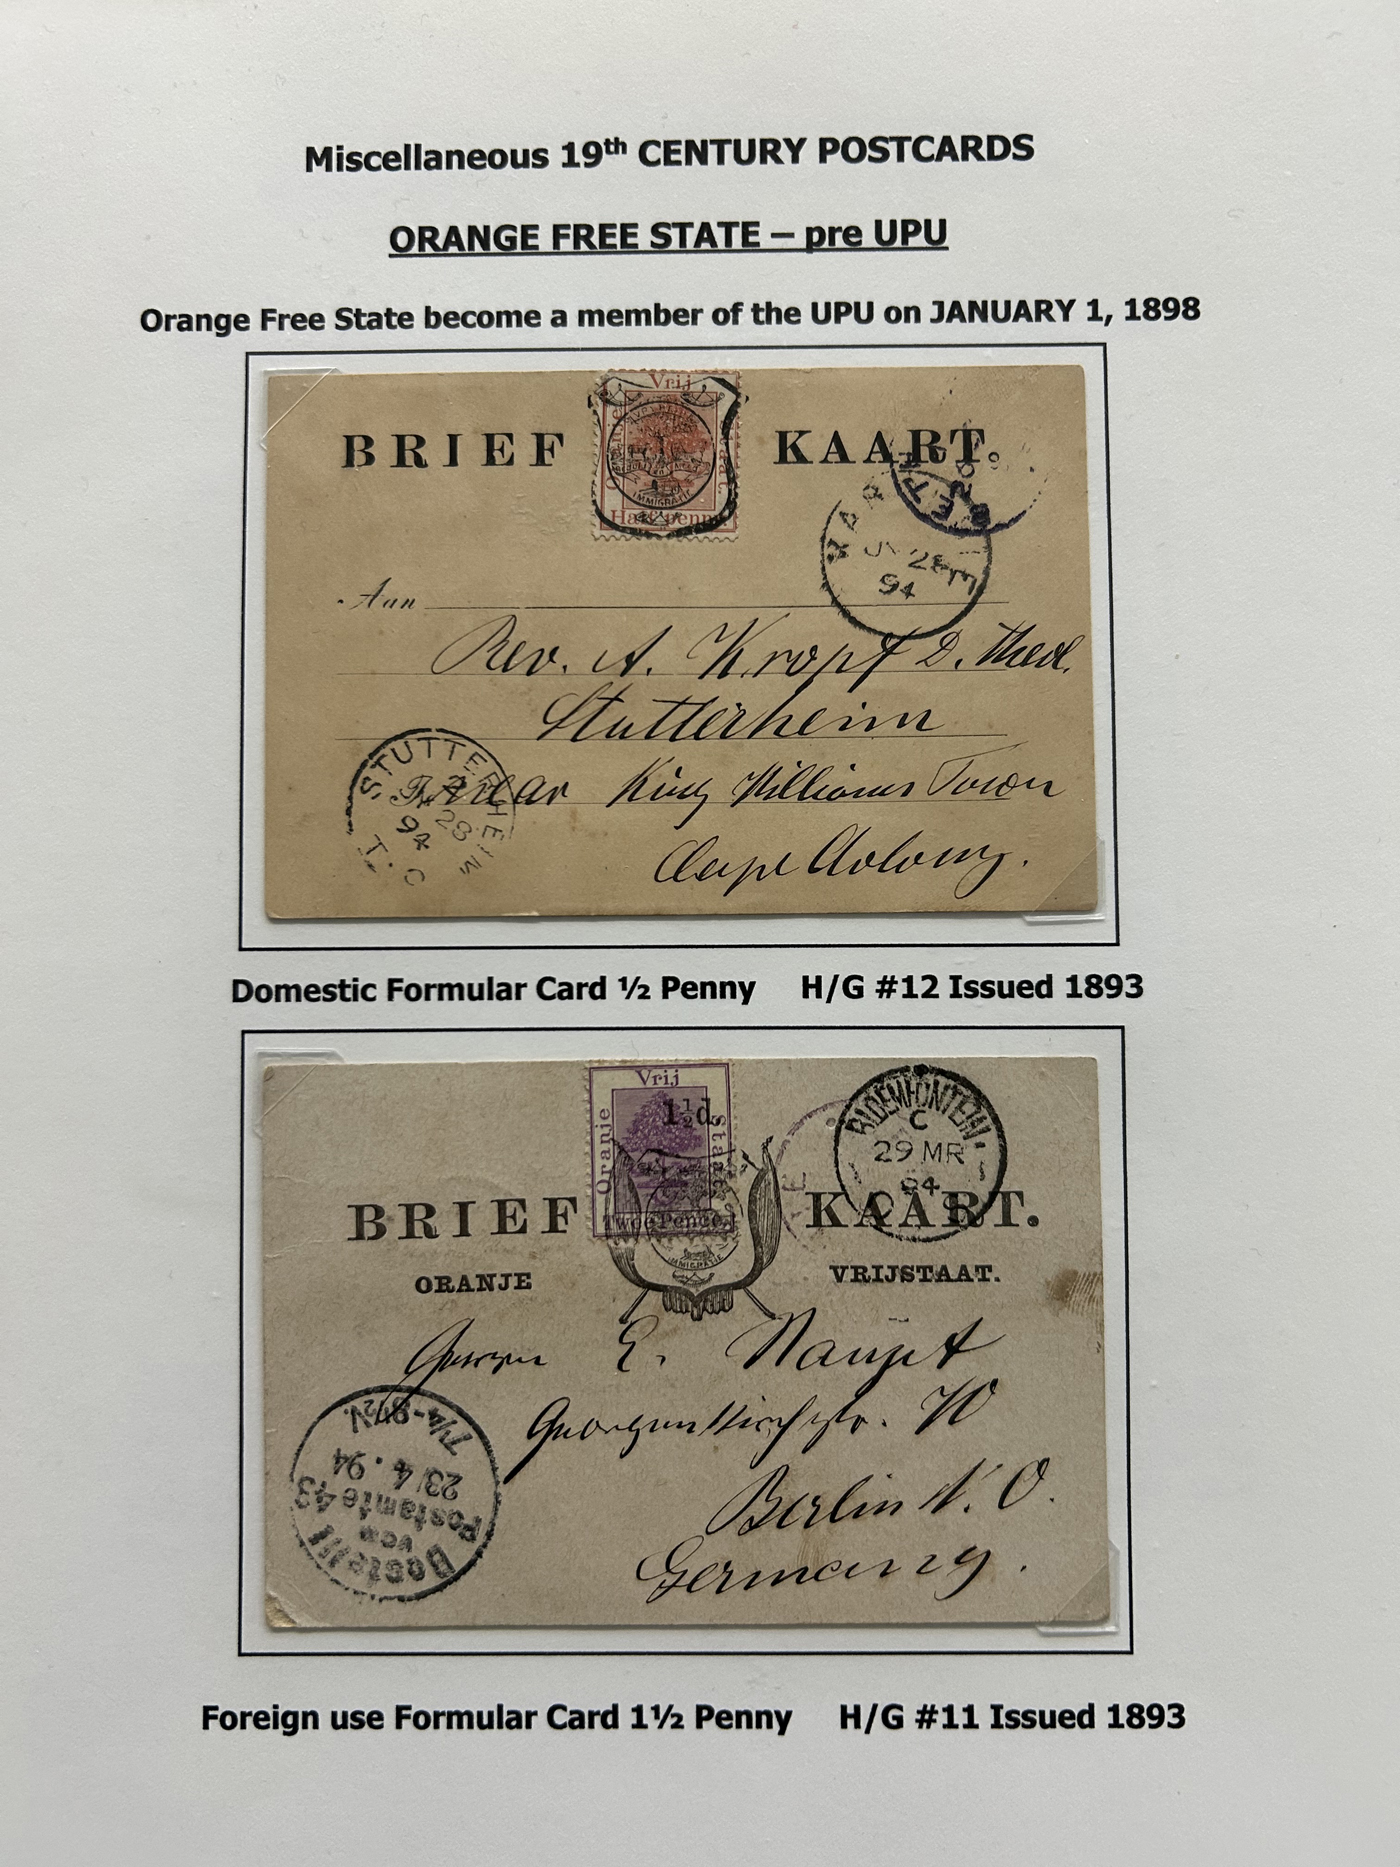 Miscellaneous 19th CENTURY POSTCARDS
ORANGE FREE STATE – pre UPU
Orange Free State become a member of the UPU on JANUARY 1, 1898
Vrij
BRIEF KAART.
IMMIGRATIE
Half penny
JY 28
94
Aan
Rev. A. Kropf D. theol.
Stutterheim
STUTTERHEIM
King Williams Town
28
94
T. O
Cape Colony.
Domestic Formular Card ½ Penny H/G #12 Issued 1893
Vrij
1½d.
Oranje
Staat
Twee Pence.
BLOEMFONTEIN
C
29 MR
94
BRIEF KAART.
IMMIGRATIE
ORANJE VRIJSTAAT.
E. Naupt
Georgenkirchstr.
Berlin N. O.
Germany.
Bestellt
vom
Postamte 43
23/4.94
7¼-8½V.
Foreign use Formular Card 1½ Penny H/G #11 Issued 1893